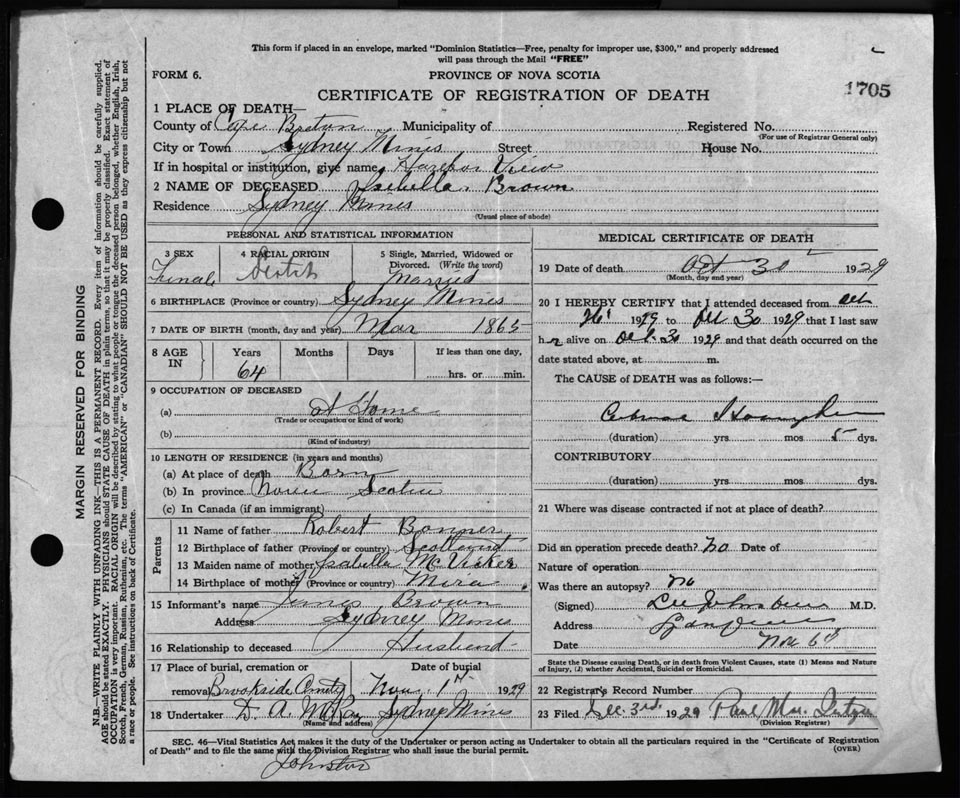 This form if placed in an envelope, marked "Dominion Statistics—Free, penalty for improper use, $300," and properly addressed
will pass through the Mail "FREE"
FORM 6.
PROVINCE OF NOVA SCOTIA
1705
CERTIFICATE OF REGISTRATION OF DEATH
1 PLACE OF DEATH—
County of Cape Breton Municipality of Registered No.
(For use of Registrar General only)
City or Town Sydney Mines Street House No.
If in hospital or institution, give name Harbor View
2 NAME OF DECEASED Isabella Brown
Residence Sydney Mines
(Usual place of abode)
PERSONAL AND STATISTICAL INFORMATION
3 SEX 4 RACIAL ORIGIN 5 Single, Married, Widowed or
Divorced. (Write the word)
Female Married
6 BIRTHPLACE (Province or country) Sydney Mines
7 DATE OF BIRTH (month, day and year) Mar 1865
8 AGE IN Years Months Days If less than one day,
64 hrs. or min.
9 OCCUPATION OF DECEASED
(a) at Home
(Trade or occupation or kind of work)
(b)
(Kind of industry)
10 LENGTH OF RESIDENCE (in years and months)
(a) At place of death Born
(b) In province Nova Scotia
(c) In Canada (if an immigrant)
Parents
11 Name of father Robert Bonner
12 Birthplace of father (Province or country) Scotland
13 Maiden name of mother Isabella McVicker
14 Birthplace of mother (Province or country) Mira
15 Informant's name James Brown
Address Sydney Mines
16 Relationship to deceased Husband
17 Place of burial, cremation or Date of burial
removal Brookside Nov. 1st 1929
18 Undertaker D. A. McKay Sydney Mines
(Name and address)
MEDICAL CERTIFICATE OF DEATH
19 Date of death Oct 30 1929
(Month, day and year)
20 I HEREBY CERTIFY that I attended deceased from Oct
26 1929 to Oct 30 1929 that I last saw
her alive on Oct. 30 1929 and that death occurred on the
date stated above, at m.
The CAUSE of DEATH was as follows:—
(duration) yrs. mos 5 dys.
CONTRIBUTORY
(duration) yrs. mos. dys.
21 Where was disease contracted if not at place of death?
Did an operation precede death? No Date of
Nature of operation
Was there an autopsy? No
(Signed) M.D.
Address
Date Nov 6th
State the Disease causing Death, or in death from Violent Causes, state (1) Means and Nature
of Injury, (2) whether Accidental, Suicidal or Homicidal.
22 Registrar's Record Number
23 Filed Dec. 3rd. 1929
(Division Registrar)
SEC. 46—Vital Statistics Act makes it the duty of the Undertaker or person acting as Undertaker to obtain all the particulars required in the "Certificate of Registration
of Death" and to file the same with the Division Registrar who shall issue the burial permit.
(OVER)
Johnston
MARGIN RESERVED FOR BINDING
N.B.—WRITE PLAINLY WITH UNFADING INK—THIS IS A PERMANENT RECORD. Every item of information should be carefully supplied.
AGE should be stated EXACTLY. PHYSICIANS should STATE CAUSE OF DEATH in plain terms, so that it may be properly classified. Exact statement of
OCCUPATION is very important. RACIAL ORIGIN will be described by stating to what people or tongue the deceased person belonged, whether English, Irish,
Scotch, French, German, Russian, Ruthenian, etc. The terms "AMERICAN" or "CANADIAN" SHOULD NOT BE USED as they express citizenship but not
a race or people. See instructions on back of Certificate.